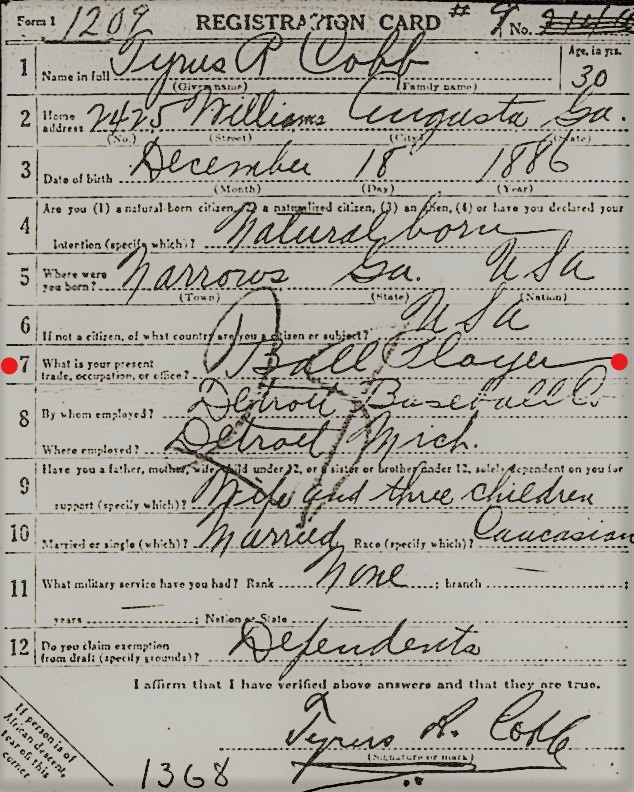 Form 1 1209 REGISTRATION CARD # 9 No.
1 Name in full Tyrus R Cobb Age, in yrs. 30
(Given name) (Family name)
2 Home address 2425 Williams Augusta Ga.
(No.) (Street) (City) (State)
3 Date of birth December 18 1886
(Month) (Day) (Year)
4 Are you (1) a natural-born citizen, (2) a naturalized citizen, (3) an alien, (4) or have you declared your
intention (specify which)? Natural born
5 Where were you born? Narrows Ga. USA
(Town) (State) (Nation)
6 If not a citizen, of what country are you a citizen or subject? USA
7 What is your present trade, occupation, or office? Ball Player
8 By whom employed? Detroit Baseball Co
Where employed? Detroit Mich.
9 Have you a father, mother, wife, child under 12, or a sister or brother under 12, solely dependent on you for
support (specify which)? Wife and three children
10 Married or single (which)? Married Race (specify which)? Caucasian
11 What military service have you had? Rank None ; branch ;
years ; Nation or State
12 Do you claim exemption from draft (specify grounds)? Dependents
I affirm that I have verified above answers and that they are true.
Tyrus R. Cobb
(Signature or mark)
If person is of
African descent,
tear off this
corner.
1368